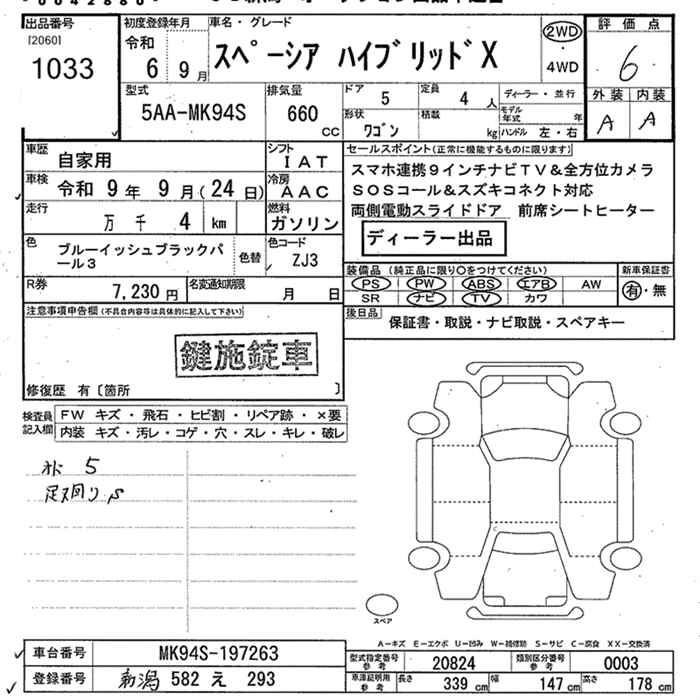 出品番号 初度登録年月 車名・グレード 評価点
[2060] 令和
1033 6 9月 スペーシア ハイブリッドX 2WD・4WD 6
型式 排気量 ドア 定員 ディーラー・並行 外装 内装
5AA-MK94S 660 CC 5 4 人 モデル年式 年 A A
形状 積載 ハンドル 左・右
ワゴン kg
車歴 自家用 シフト IAT セールスポイント(正常に機能するものに限ります)
車検 令和 9年 9月(24日) 冷房 AAC スマホ連携9インチナビTV&全方位カメラ
SOSコール&スズキコネクト対応
走行 万 千 4 km 燃料 ガソリン 両側電動スライドドア 前席シートヒーター
ディーラー出品
色 ブルーイッシュブラックパール3 色替 色コード ZJ3
装備品(純正品に限り○をつけてください) 新車保証書
R券 7,230円 名変通知期限 月 日 PS PW ABS エアB AW 有・無
SR ナビ TV カワ
注意事項申告欄(不具合内容等は具体的に記入して下さい) 後日品 保証書・取説・ナビ取説・スペアキー
鍵施錠車
修復歴 有〔箇所 〕
検査員記入欄 FW キズ・飛石・ヒビ割・リペア跡・×要
内装 キズ・汚レ・コゲ・穴・スレ・キレ・破レ
5
足廻り S
C
スペア
A-キズ E-エクボ U-凹み W-補修跡 S-サビ C-腐食 XX-交換済
車台番号 MK94S-197263 型式指定番号 参考 20824 類別区分番号 参考 0003
登録番号 新潟 582 え 293 車庫証明用 参考 長さ 339cm 幅 147cm 高さ 178cm